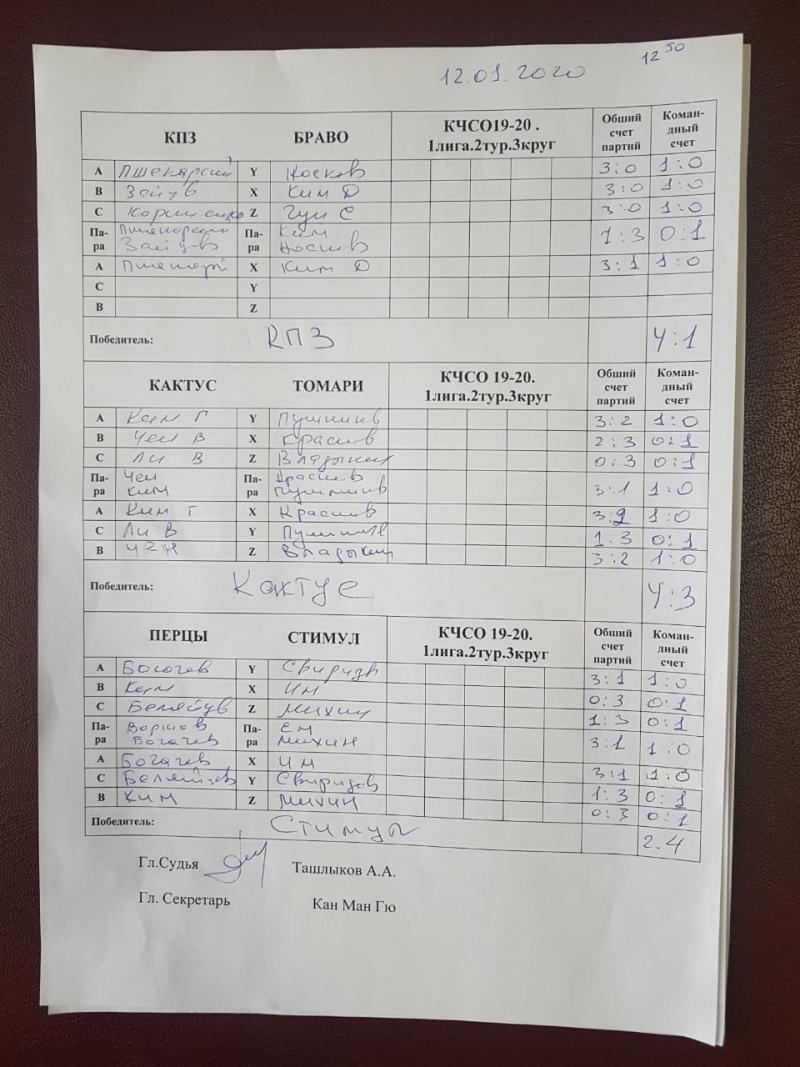 12.01.2020 12 50
КПЗ БРАВО КЧСО19-20 . 1лига.2тур.3круг Обший счет партий Коман-дный счет
A Y Носков 3:0 1:0
B X Ким D 3:0 1:0
C Z 3:0 1:0
Па-ра Па-ра Ким 1:3 0:1
A X Ким D 3:1 1:0
C Y
B Z
Победитель: КПЗ 4:1
КАКТУС ТОМАРИ КЧСО 19-20. 1лига.2тур.3круг Обший счет партий Коман-дный счет
A Ким Г Y 3:2 1:0
B Чен В X 2:3 0:1
C Ли В Z 0:3 0:1
Па-ра Чен Ким Па-ра 3:1 1:0
A Ким Г X 3:2 1:0
C Ли В Y 1:3 0:1
B Z 3:2 1:0
Победитель: Кактус 4:3
ПЕРЦЫ СТИМУЛ КЧСО 19-20. 1лига.2тур.3круг Обший счет партий Коман-дный счет
A Богачев Y 3:1 1:0
B Ким X Им 0:3 0:1
C Z Михин 1:3 0:1
Па-ра Богачев Па-ра Михин 3:1 1:0
A Богачев X Им 3:1 1:0
C Y Свиридов 1:3 0:1
B Ким Z Михин 0:3 0:1
Победитель: Стимул 2.4
Гл.Судья Ташлыков А.А.
Гл. Секретарь Кан Ман Гю